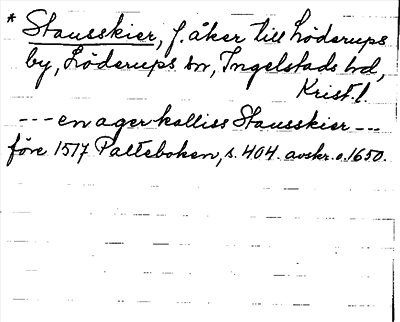 * Stausskier, f. åker till Löderups
by, Löderups sn, Ingelstads hd,
Krist. l.
--- en ager kalliss Stausskier ---
före 1517 Palteboken, s. 404. avskr. o. 1650.